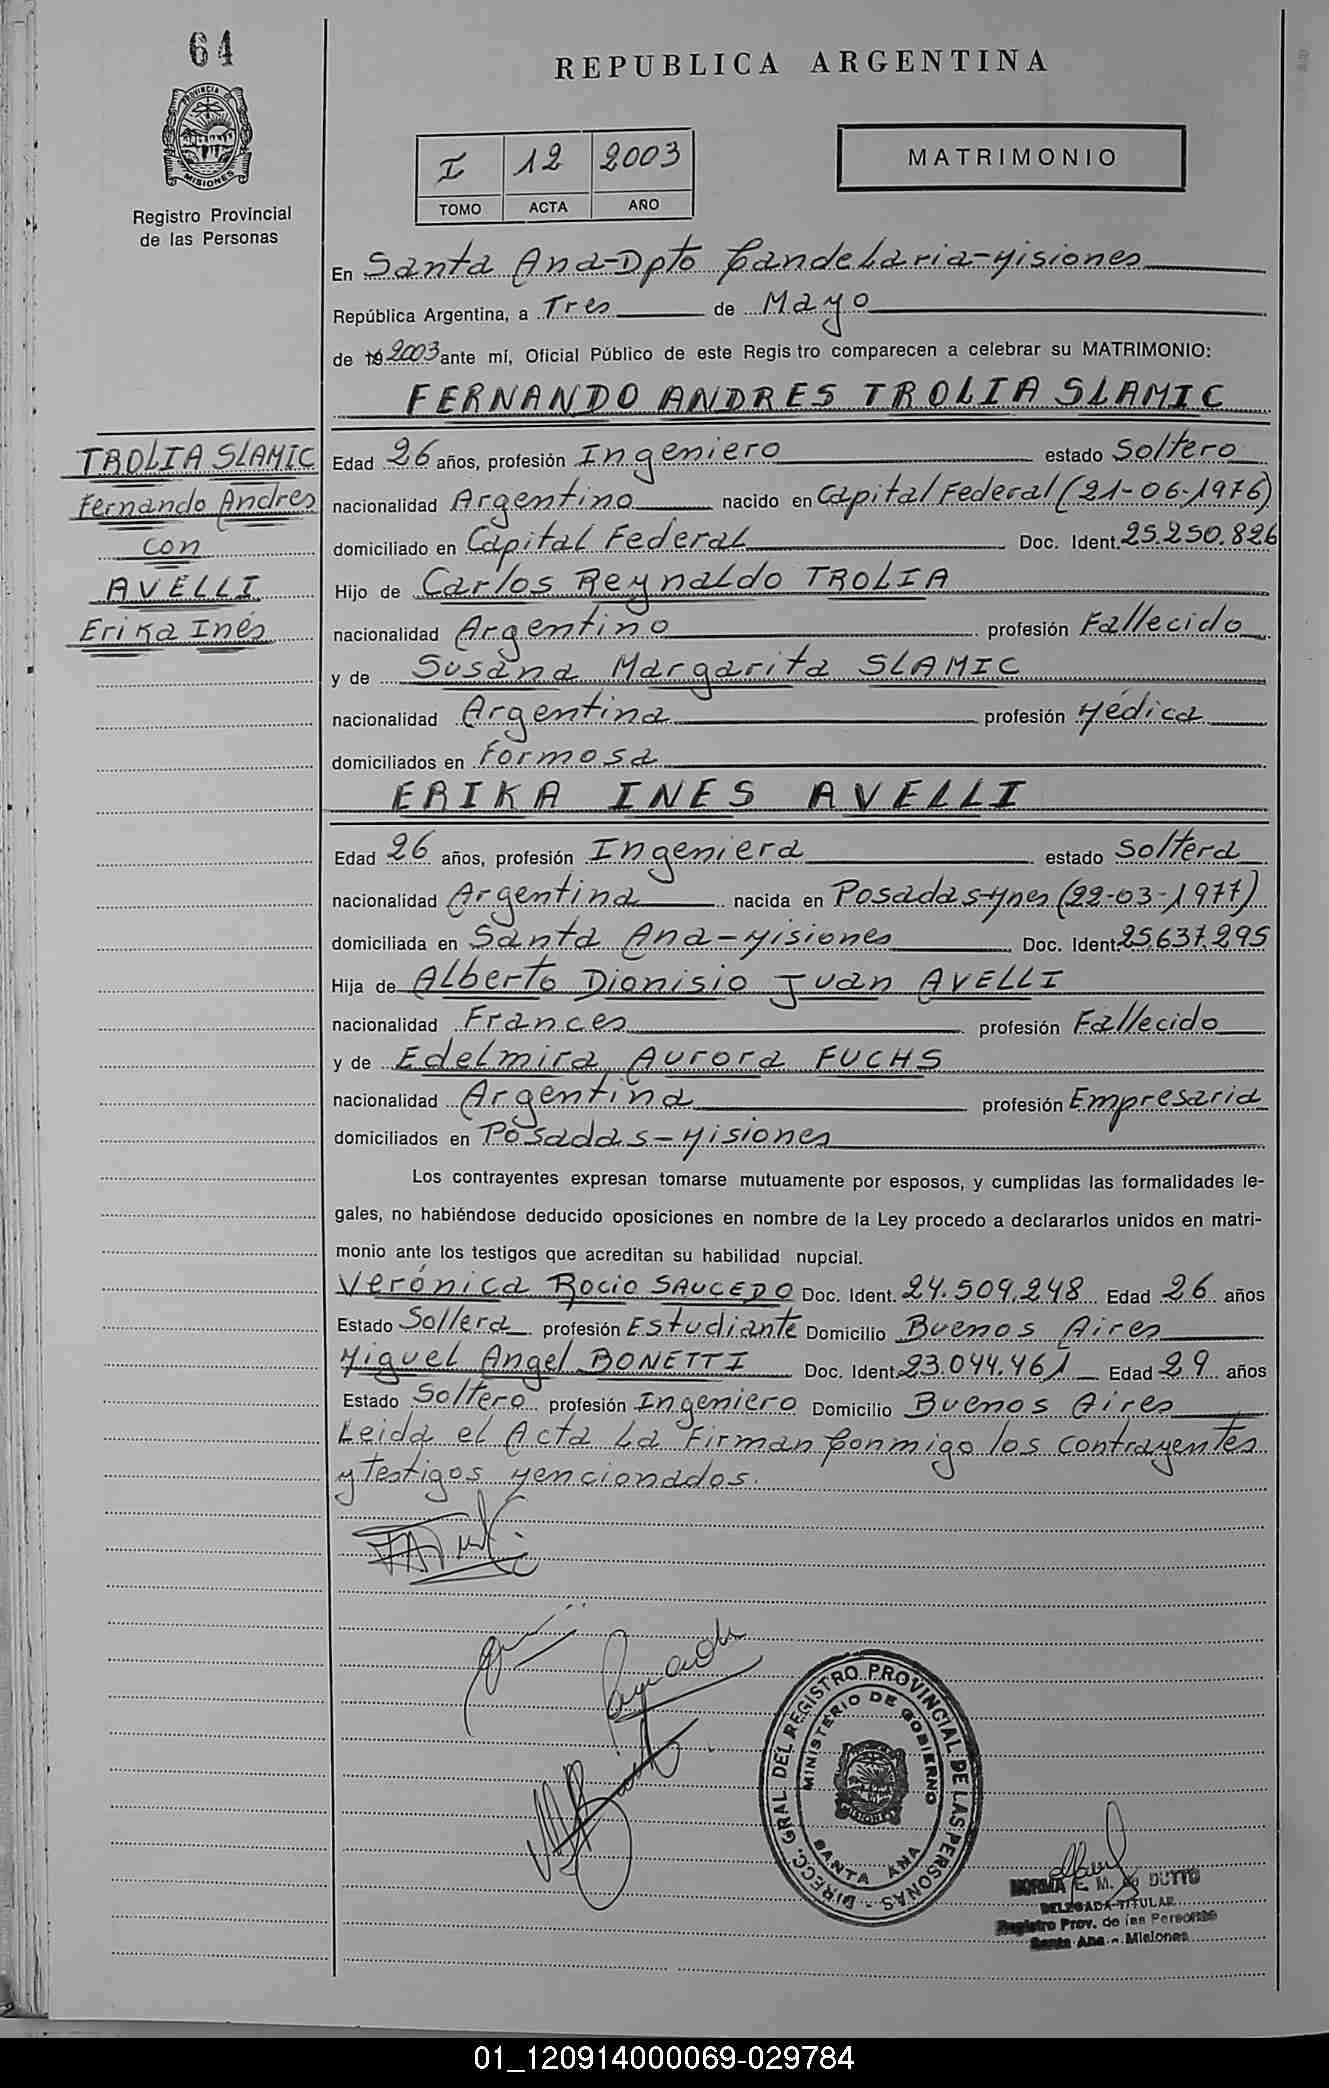 64
REPUBLICA ARGENTINA
PROVINCIA DE
MISIONES
Registro Provincial
de las Personas
I 12 2003
TOMO ACTA AÑO
MATRIMONIO
En Santa Ana-Dpto Candelaria-Misiones
República Argentina, a Tres de Mayo
de 19 2003 ante mí, Oficial Público de este Registro comparecen a celebrar su MATRIMONIO:
FERNANDO ANDRES TROLIA SLAMIC
TROLIA SLAMIC
Fernando Andres
con
AVELLI
Erika Inés
Edad 26 años, profesión Ingeniero estado Soltero
nacionalidad Argentino nacido en Capital Federal (21-06-1976)
domiciliado en Capital Federal Doc. Ident. 25.250.826
Hijo de Carlos Reynaldo TROLIA
nacionalidad Argentino profesión Fallecido
y de Susana Margarita SLAMIC
nacionalidad Argentina profesión Médica
domiciliados en Formosa
ERIKA INES AVELLI
Edad 26 años, profesión Ingeniera estado Soltera
nacionalidad Argentina nacida en Posadas-Mnes (22-03-1977)
domiciliada en Santa Ana-Misiones Doc. Ident. 25.637.295
Hija de Alberto Dionisio Juan AVELLI
nacionalidad Frances profesión Fallecido
y de Edelmira Aurora FUCHS
nacionalidad Argentina profesión Empresaria
domiciliados en Posadas-Misiones
Los contrayentes expresan tomarse mutuamente por esposos, y cumplidas las formalidades le-
gales, no habiéndose deducido oposiciones en nombre de la Ley procedo a declararlos unidos en matri-
monio ante los testigos que acreditan su habilidad nupcial.
Verónica Rocio SAUCEDO Doc. Ident. 24.509.248 Edad 26 años
Estado Soltera profesión Estudiante Domicilio Buenos Aires
Miguel Angel BONETTI Doc. Ident. 23.044.461 Edad 29 años
Estado Soltero profesión Ingeniero Domicilio Buenos Aires
Leida el Acta La Firman Conmigo los contrayentes
y testigos Mencionados.
DIRECC. GRAL. DEL REGISTRO PROVINCIAL DE LAS PERSONAS
MINISTERIO DE GOBIERNO
SANTA ANA
NORMA E. M. DUTTO
DELEGADA TITULAR
Registro Prov. de las Personas
Santa Ana - Misiones
01_120914000069-029784